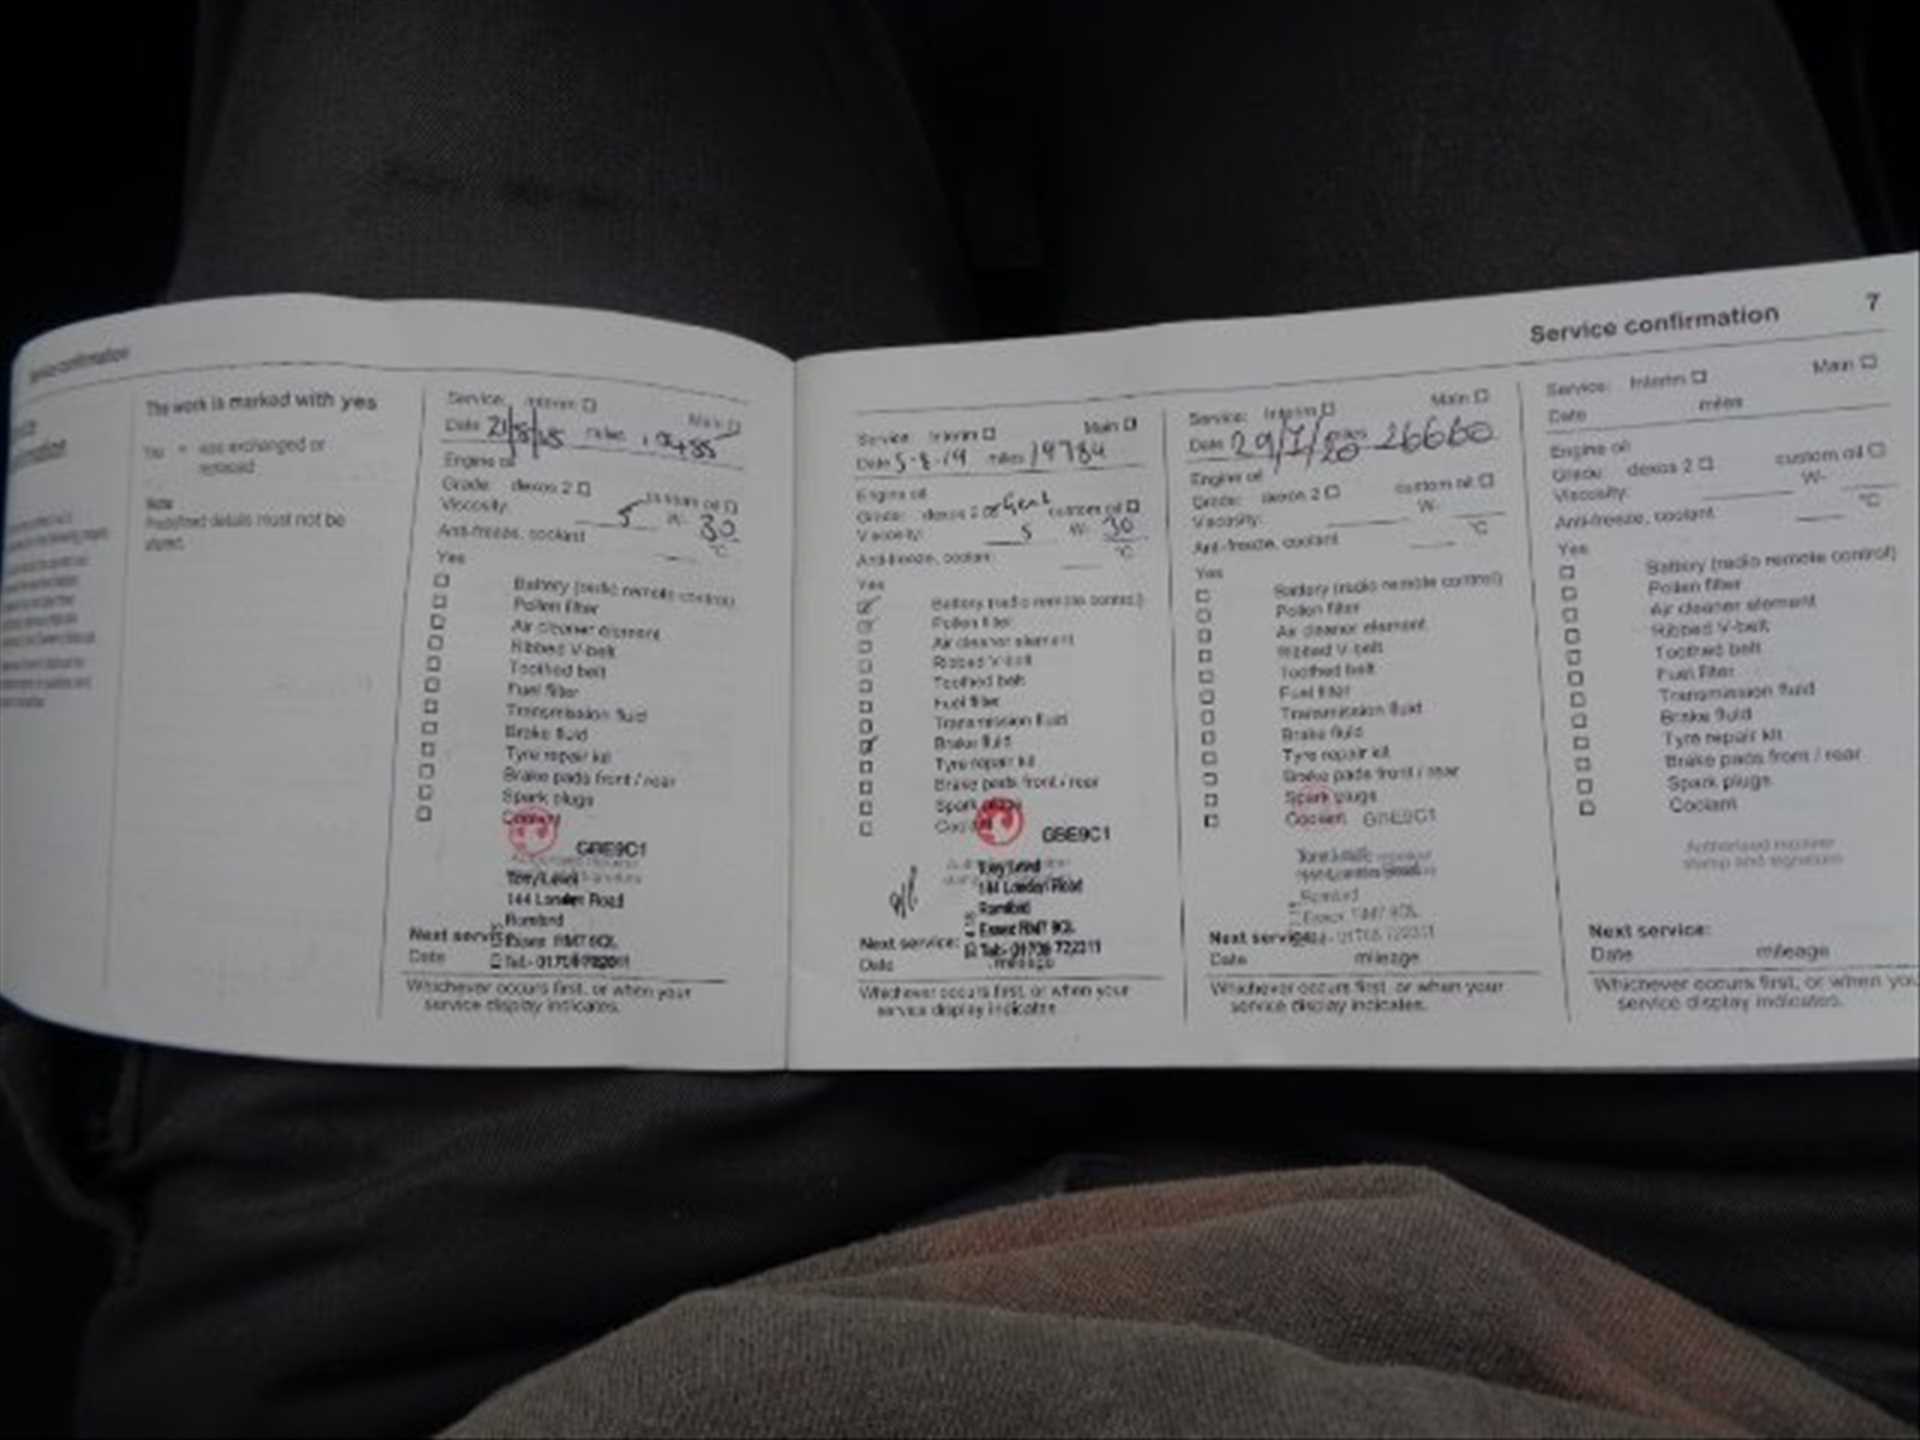 Service confirmation
The work is marked with yes
Yes = was exchanged or
replaced
Note
Predefined details must not be
altered.
Service: Interim □ Main □
Date miles
Engine oil
Grade: dexos 2 □ custom oil □
Viscosity: 5 W- 30
Anti-freeze, coolant °C
Yes
□ Battery (radio remote control)
□ Pollen filter
□ Air cleaner element
□ Ribbed V-belt
□ Toothed belt
□ Fuel filter
□ Transmission fluid
□ Brake fluid
□ Tyre repair kit
□ Brake pads front / rear
□ Spark plugs
□ Coolant
GBE9C1
144 London Road
Romford
Essex RM7 9QL
Next service:
Date Tel:- 01708 722011
Whichever occurs first, or when your
service display indicates.
Service: Interim □ Main □
Date 5-8-19 miles 19784
Engine oil
Grade: dexos 2 custom oil □
Viscosity: 5 W- 30
Anti-freeze, coolant °C
Yes
Battery (radio remote control)
Pollen filter
□ Air cleaner element
□ Ribbed V-belt
□ Toothed belt
□ Fuel filter
□ Transmission fluid
Brake fluid
□ Tyre repair kit
□ Brake pads front / rear
□ Spark plugs
□ Coolant
GBE9C1
144 London Road
Romford
Essex RM7 9QL
Next service: Tel:- 01708 722011
Date mileage
Whichever occurs first, or when your
service display indicates.
Service confirmation 7
Service: Interim □ Main □
Date 29/7/20 miles 26660
Engine oil
Grade: dexos 2 □ custom oil □
Viscosity: W-
Anti-freeze, coolant °C
Yes
□ Battery (radio remote control)
□ Pollen filter
□ Air cleaner element
□ Ribbed V-belt
□ Toothed belt
□ Fuel filter
□ Transmission fluid
□ Brake fluid
□ Tyre repair kit
□ Brake pads front / rear
□ Spark plugs
□ Coolant GBE9C1
Romford
Essex RM7 9QL
Next service: 01708 722011
Date mileage
Whichever occurs first, or when your
service display indicates.
Service: Interim □ Main □
Date miles
Engine oil
Grade: dexos 2 □ custom oil □
Viscosity: W-
Anti-freeze, coolant °C
Yes
□ Battery (radio remote control)
□ Pollen filter
□ Air cleaner element
□ Ribbed V-belt
□ Toothed belt
□ Fuel filter
□ Transmission fluid
□ Brake fluid
□ Tyre repair kit
□ Brake pads front / rear
□ Spark plugs
□ Coolant
Authorised repairer
stamp and signature
Next service:
Date mileage
Whichever occurs first, or when you
service display indicates.